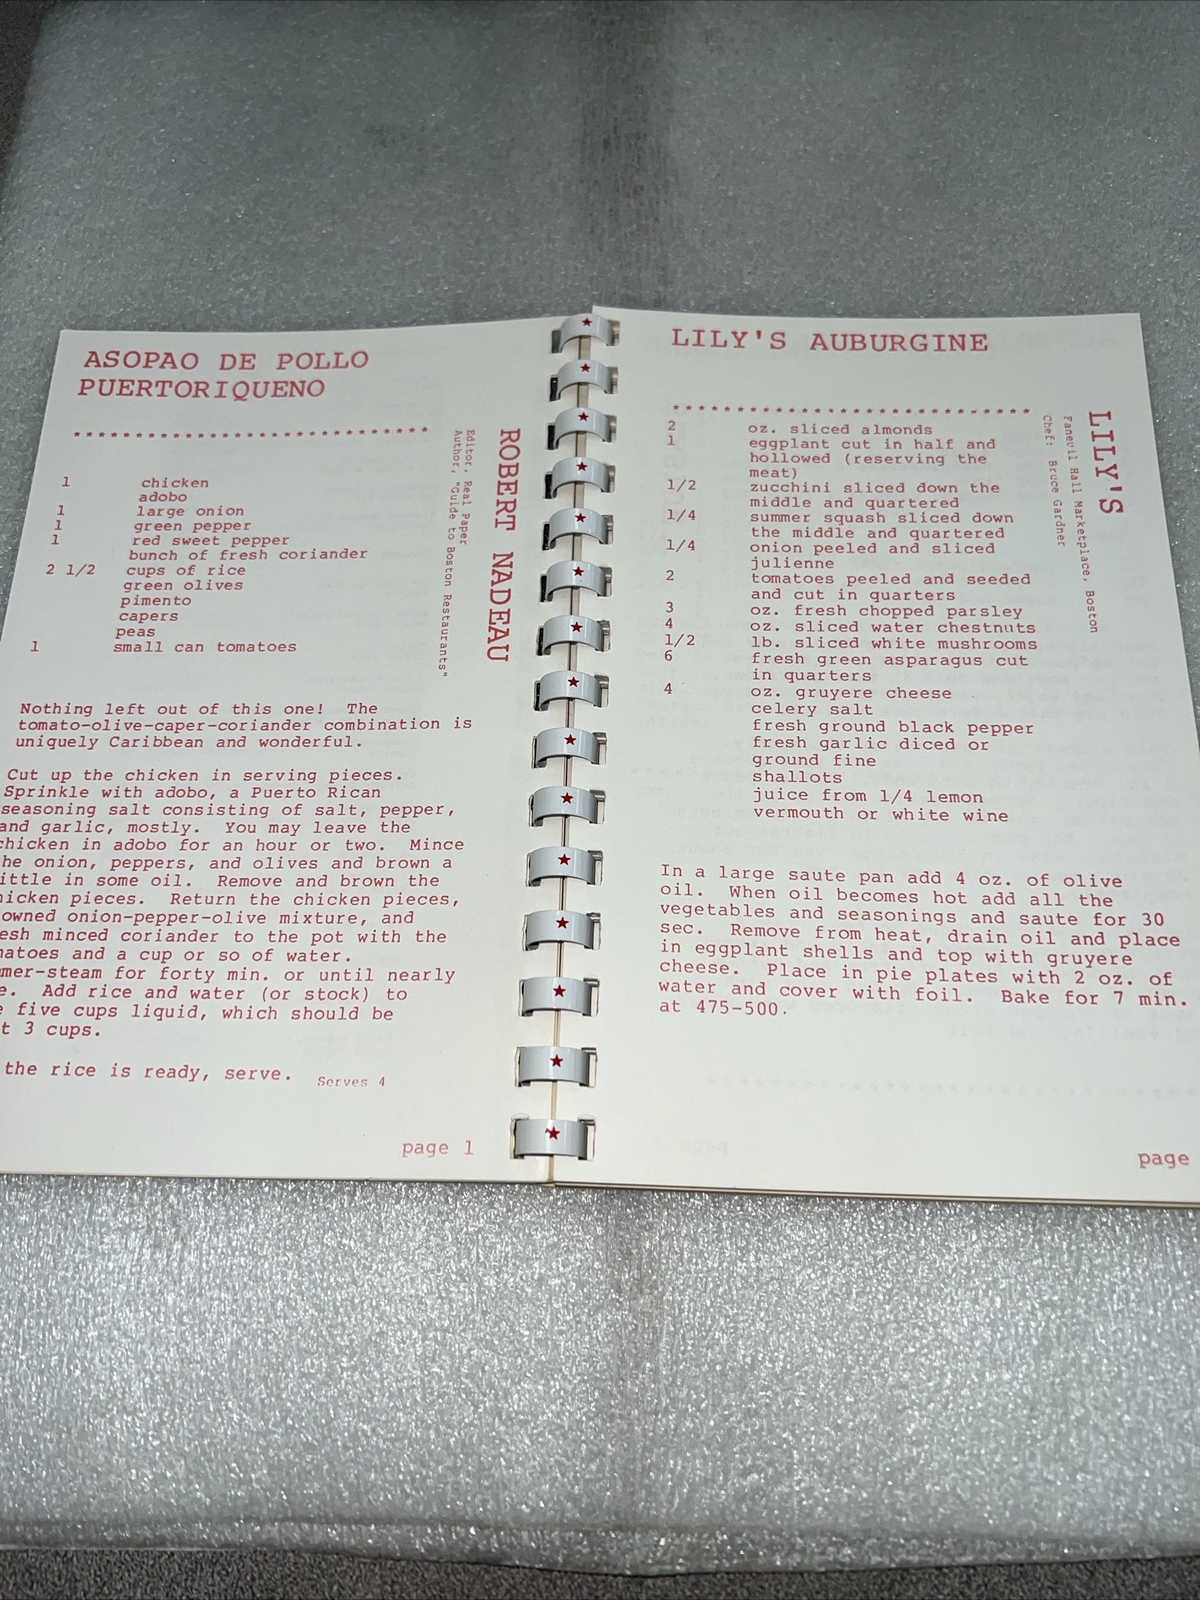 ASOPAO DE POLLO
PUERTORIQUENO
ROBERT NADEAU
Editor, Real Paper
Author, "Guide to Boston Restaurants"
1 chicken
adobo
1 large onion
1 green pepper
1 red sweet pepper
bunch of fresh coriander
2 1/2 cups of rice
green olives
pimento
capers
peas
1 small can tomatoes
Nothing left out of this one! The
tomato-olive-caper-coriander combination is
uniquely Caribbean and wonderful.
Cut up the chicken in serving pieces.
Sprinkle with adobo, a Puerto Rican
seasoning salt consisting of salt, pepper,
and garlic, mostly. You may leave the
chicken in adobo for an hour or two. Mince
he onion, peppers, and olives and brown a
ittle in some oil. Remove and brown the
hicken pieces. Return the chicken pieces,
owned onion-pepper-olive mixture, and
esh minced coriander to the pot with the
matoes and a cup or so of water.
mer-steam for forty min. or until nearly
e. Add rice and water (or stock) to
e five cups liquid, which should be
t 3 cups.
the rice is ready, serve. Serves 4
page 1
LILY'S AUBURGINE
LILY'S
Faneuil Hall Marketplace, Boston
Chef: Bruce Gardner
2 oz. sliced almonds
1 eggplant cut in half and
hollowed (reserving the
meat)
1/2 zucchini sliced down the
middle and quartered
1/4 summer squash sliced down
the middle and quartered
1/4 onion peeled and sliced
julienne
2 tomatoes peeled and seeded
and cut in quarters
3 oz. fresh chopped parsley
4 oz. sliced water chestnuts
1/2 lb. sliced white mushrooms
6 fresh green asparagus cut
in quarters
4 oz. gruyere cheese
celery salt
fresh ground black pepper
fresh garlic diced or
ground fine
shallots
juice from 1/4 lemon
vermouth or white wine
In a large saute pan add 4 oz. of olive
oil. When oil becomes hot add all the
vegetables and seasonings and saute for 30
sec. Remove from heat, drain oil and place
in eggplant shells and top with gruyere
cheese. Place in pie plates with 2 oz. of
water and cover with foil. Bake for 7 min.
at 475-500.
page